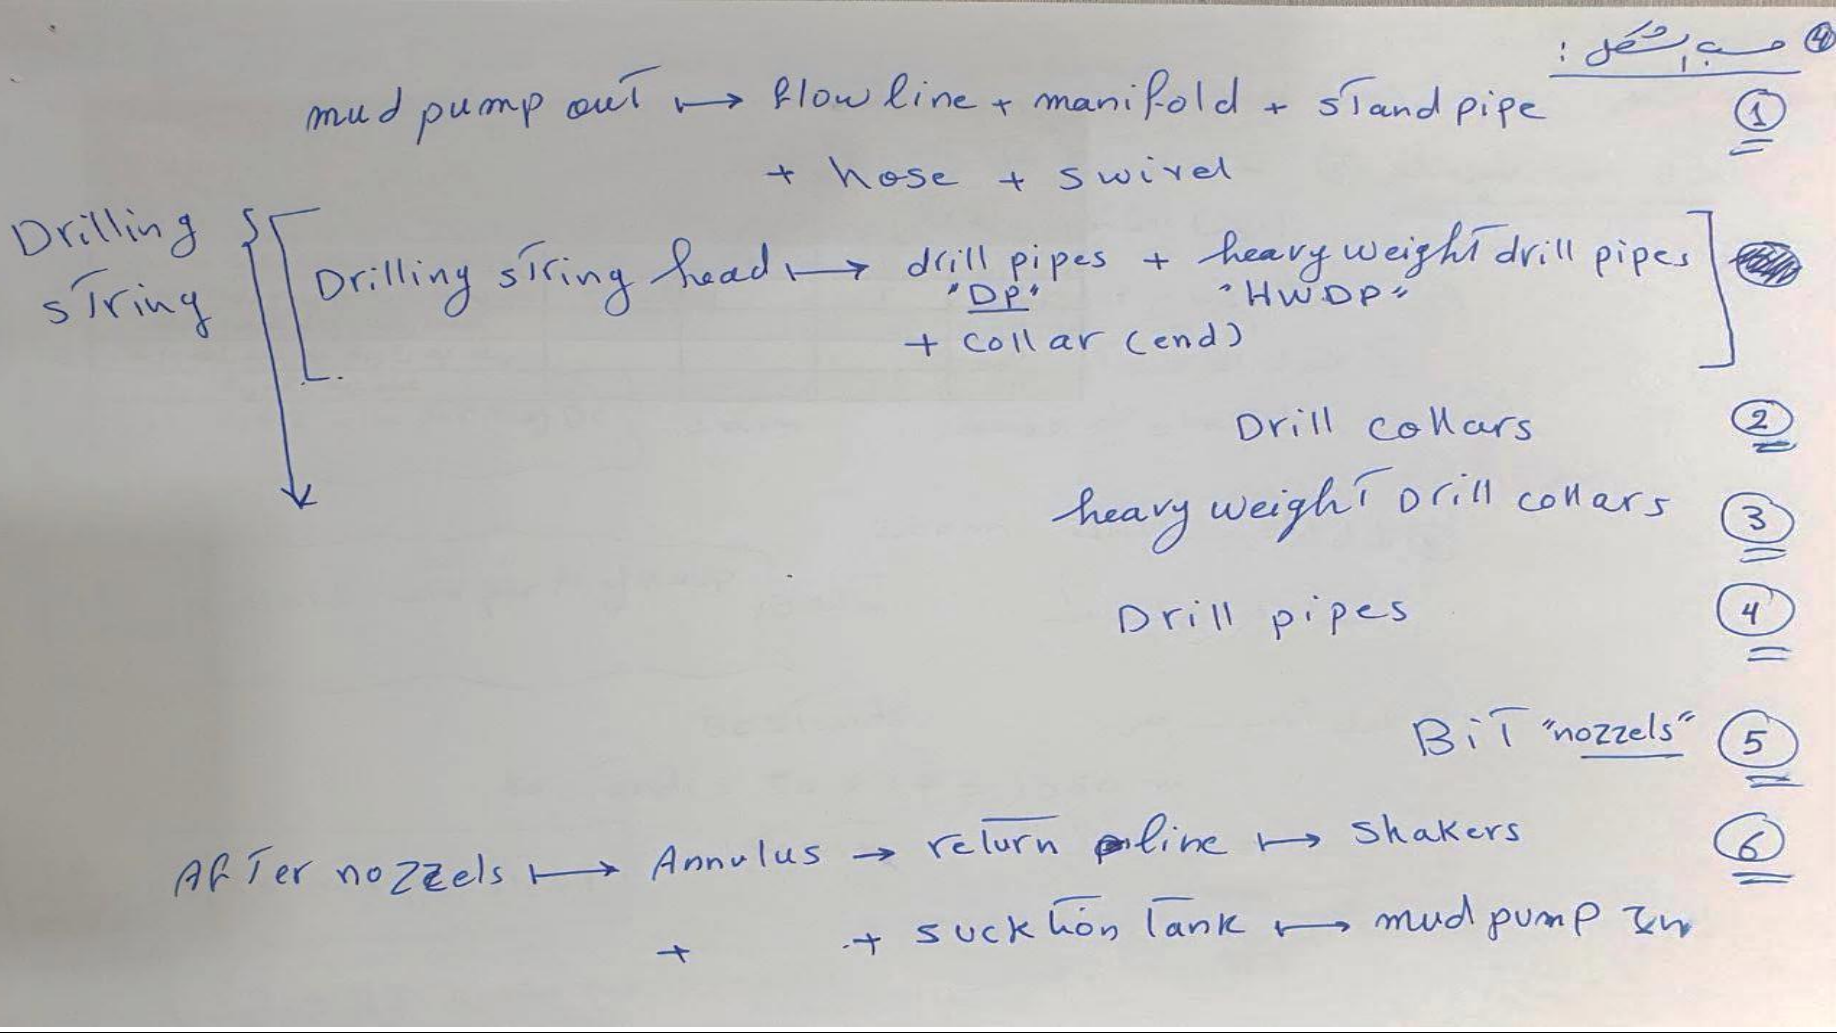 ④ حسب الشكل :
① mud pump out ↦ flow line + manifold + stand pipe
+ hose + swivel
Drilling string
[Drilling string head ↦ drill pipes + heavy weight drill pipes]
"DP" "HWDP"
+ collar (end)
② Drill collars
③ heavy weight Drill collars
④ Drill pipes
⑤ BiT "nozzels"
⑥ After nozzels ↦ Annulus → return line ↦ shakers
+ + sucktion Tank ↦ mud pump In